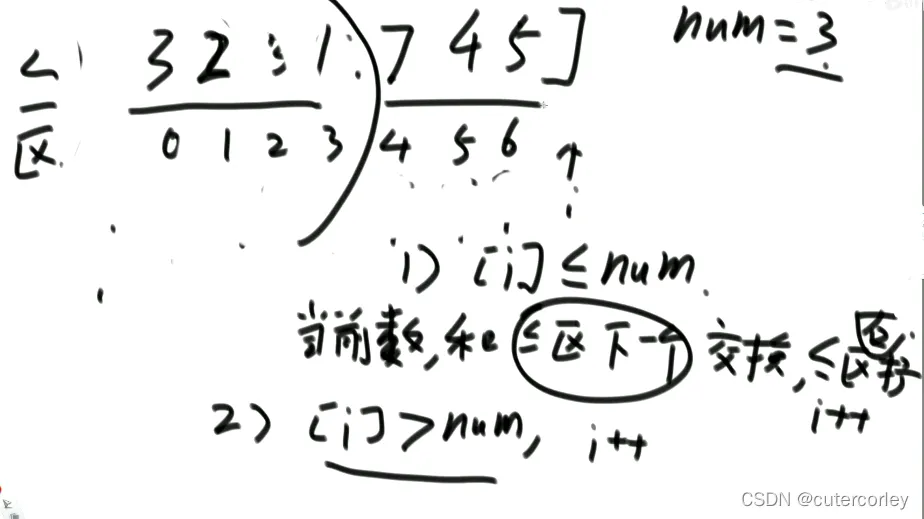 ≤ 3 2 3 1 7 4 5 ] num = 3
区 0 1 2 3 4 5 6
i
1) [i] ≤ num
当前数,和 ≤区下一个 交换,≤区右扩
i++
2) [i] > num, i++
CSDN @cutercorley